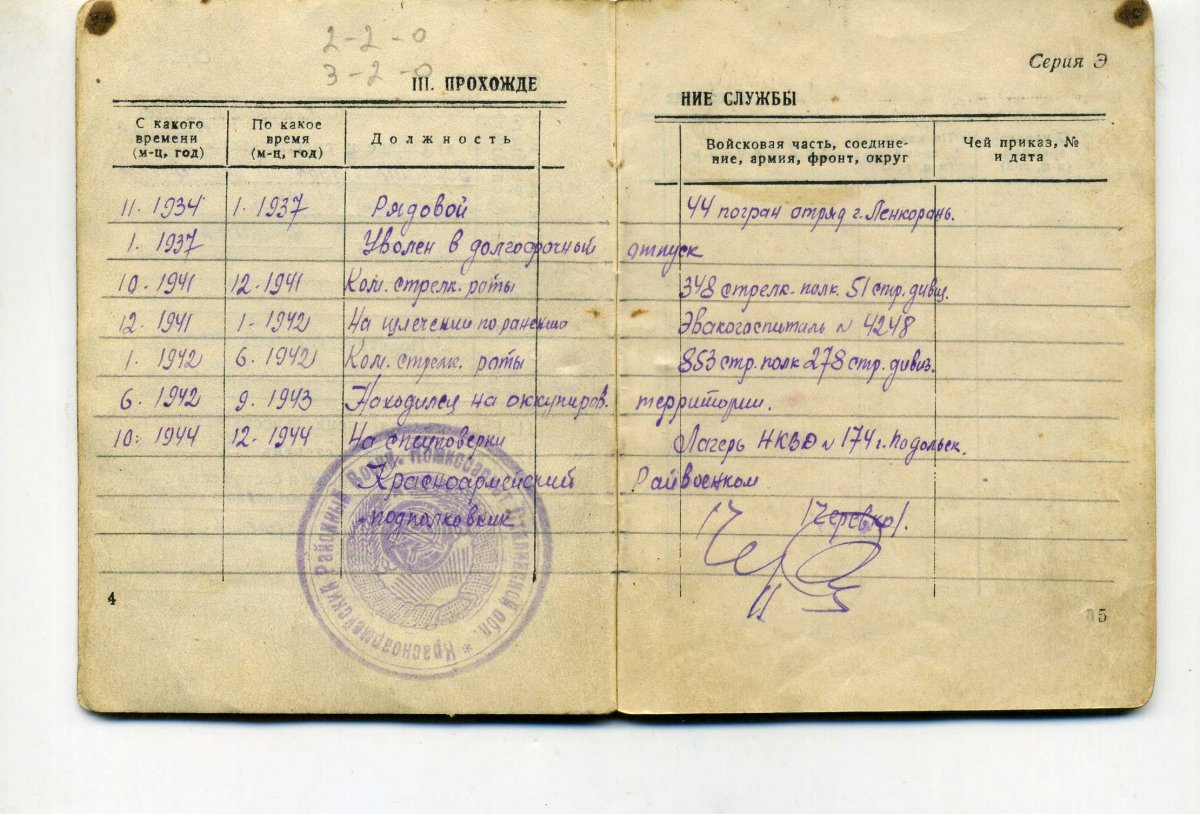 2-2-0
3-2-0
Серия Э
III. ПРОХОЖДЕНИЕ СЛУЖБЫ
С какого времени (м-ц, год) По какое время (м-ц, год) Должность Войсковая часть, соединение, армия, фронт, округ Чей приказ, № и дата
11. 1934 1. 1937 Рядовой 44 погран отряд г. Ленкорань.
1. 1937 Уволен в долгосрочный отпуск
10. 1941 12. 1941 Ком. стрелк. роты 348 стрелк. полк. 51 стр. дивиз.
12. 1941 1. 1942 На излечении по ранению Эвакогоспиталь № 4248
1. 1942 6. 1942 Ком. стрелк. роты 853 стр. полк 278 стр. дивиз.
6. 1942 9. 1943 Находился на оккупиров. территории.
10. 1944 12. 1944 На спецповерки Лагерь НКВД № 174 г. Подольск.
Красноармейский Райвоенком
подполковник /Черевко/.
Красноармейский Районный Воен. Комиссариат Сталинской обл. *
4
5